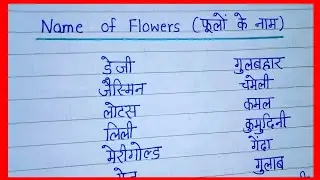 Name of Flowers (फूलों के नाम)
डेजी गुलबहार
जैस्मिन चमेली
लोटस कमल
लिली कुमुदिनी
मेरीगोल्ड गेंदा
गुलाब